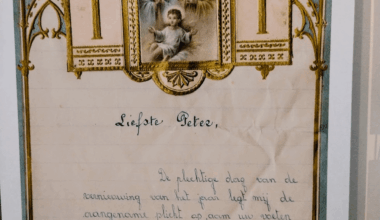 Liefste Peter,
De plechtige dag van de
vernieuwing van het jaar legt mij de
aangename plicht op, aan uw voeten